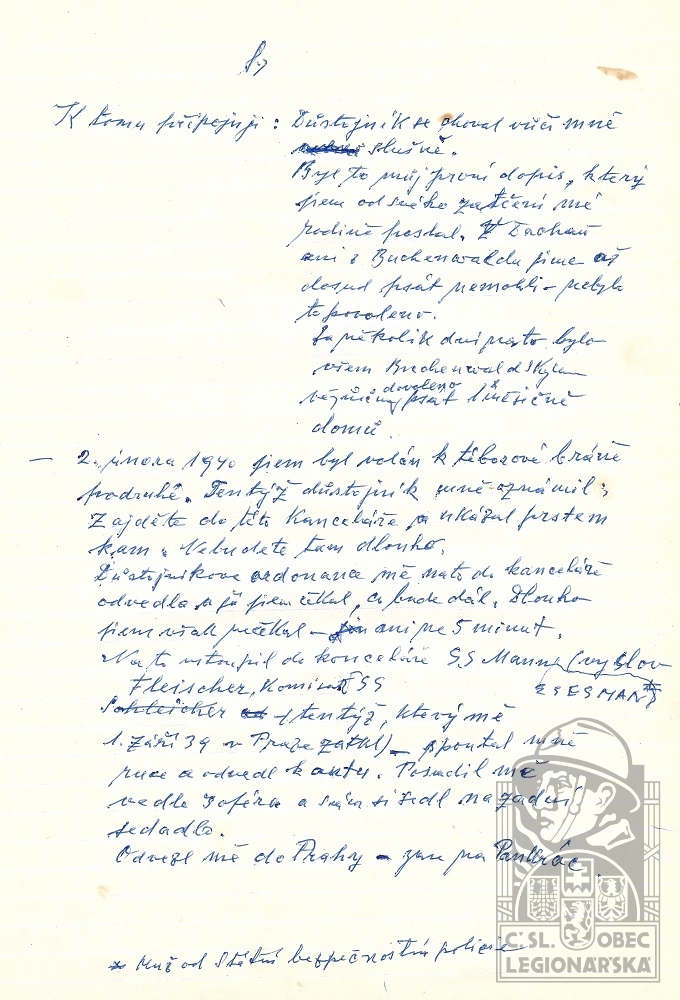 8)
K tomu připojuji: Důstojník se choval vůči mně
slušně.
Byl to můj první dopis, který
jsem od svého zatčení mé
rodině poslal. Z Dachau
ani z Buchenwaldu jsme až
dosud psát nemohli – nebylo
to povoleno.
Za několik dní na to bylo
všem Buchenwaldským
vězňům dovoleno psát 1 měsíčně
domů.
— 2. února 1940 jsem byl volán k táborové bráně
podruhé. Tentýž důstojník mně oznámil:
Zajděte do této kanceláře, a ukázal prstem
kam. Nebudete tam dlouho.
Důstojníkova ordonance mě nato do kanceláře
odvedla a já jsem čekal, co bude dál. Dlouho
jsem však nečekal – ani ne 5 minut.
Na to vstoupil do kanceláře SS Mann (vyslov
Fleischer, Komisař SS ESESMAN)
Schleicher (tentýž, který mě
1. září 39 v Praze zatkl) – spoutal mně
ruce a odvedl k autu. Posadil mě
vedle šoféra a sám si sedl na zadní
sedadlo.
Odvezl mě do Prahy – zase na Pankrác.
* Muž od Státní bezpečnostní policie
Č SL. OBEC
LEGIONÁŘSKÁ